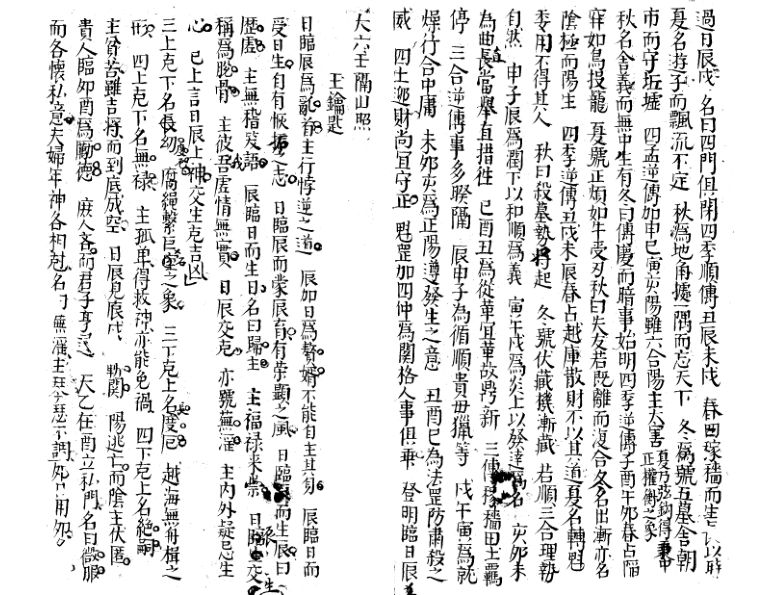 過日辰戌 名曰四門俱閉四季順傳丑辰未戌 春曰稼穡而生
夏名遊子而飄流不定 秋為地角據一隅而忘天下 冬為號五墓舍朝
市而守坵墟 四孟逆傳如申巳寅亥陽雖六合陽主大害
秋名舍義而無中生有冬曰傳慶而暗事始明四季逆傳子酉午卯春占陷
穽如鳥投籠 夏號正煩如牛受刃秋曰失友若既離而復合冬名出漸亦名
陰極而陽生 四季逆傳丑戌未辰春占越庫散財不以其道夏名轉魁
委用不得其人 秋曰殺墓勢將起 冬號伏藏機漸藏 若順三合理勢
自然 申子辰為潤下以和順為義 寅午戌為炎上以發達為名 亥卯未
為曲直長當舉直措枉 巳酉丑為從革宜革故鼎新 三傳稼穡田土羈
停 三合逆傳事多暌隔 辰申子為循順貴毋獵等 戌午寅為就
燥行合中庸 未卯亥為正陽遵發生之意 丑酉巳為法罡防肅殺之
威 四土迎財尚宜守正 魁罡加四仲為關格人事俱乖 登明臨日辰
大六壬開山照
玉鑰匙
日臨辰為亂首主行悖逆之道 辰加日為贅婿不能自主其身 辰臨日而
受日生自有恢擴之志 日臨辰而蒙辰育有荣顯之風 日臨辰而生辰曰
歷虛 主無稽妄語 辰臨日而生日名曰歸主 主福禄来崇 日
稱為脫骨 主彼吾虛情無實 日辰交克 亦號蕪淫 主內外疑忌生
心 已上言日辰上神交生克吉凶
三上克下名長幼 腐繩繫巨室之象 三下克上名度厄 越海無舟楫之
形 四上克下名無祿 主孤单得救神亦能免禍 四下克上名絕嗣
主貧苦雖吉將而到底成空 日辰見辰戌 勒関 陽逃亡而陰主伏匿
貴人臨卯酉為勵德 庶人吝而君子亨 天乙在酉立私門名曰微服
而各懷私意夫婦年神各相尅名曰蕪淫主